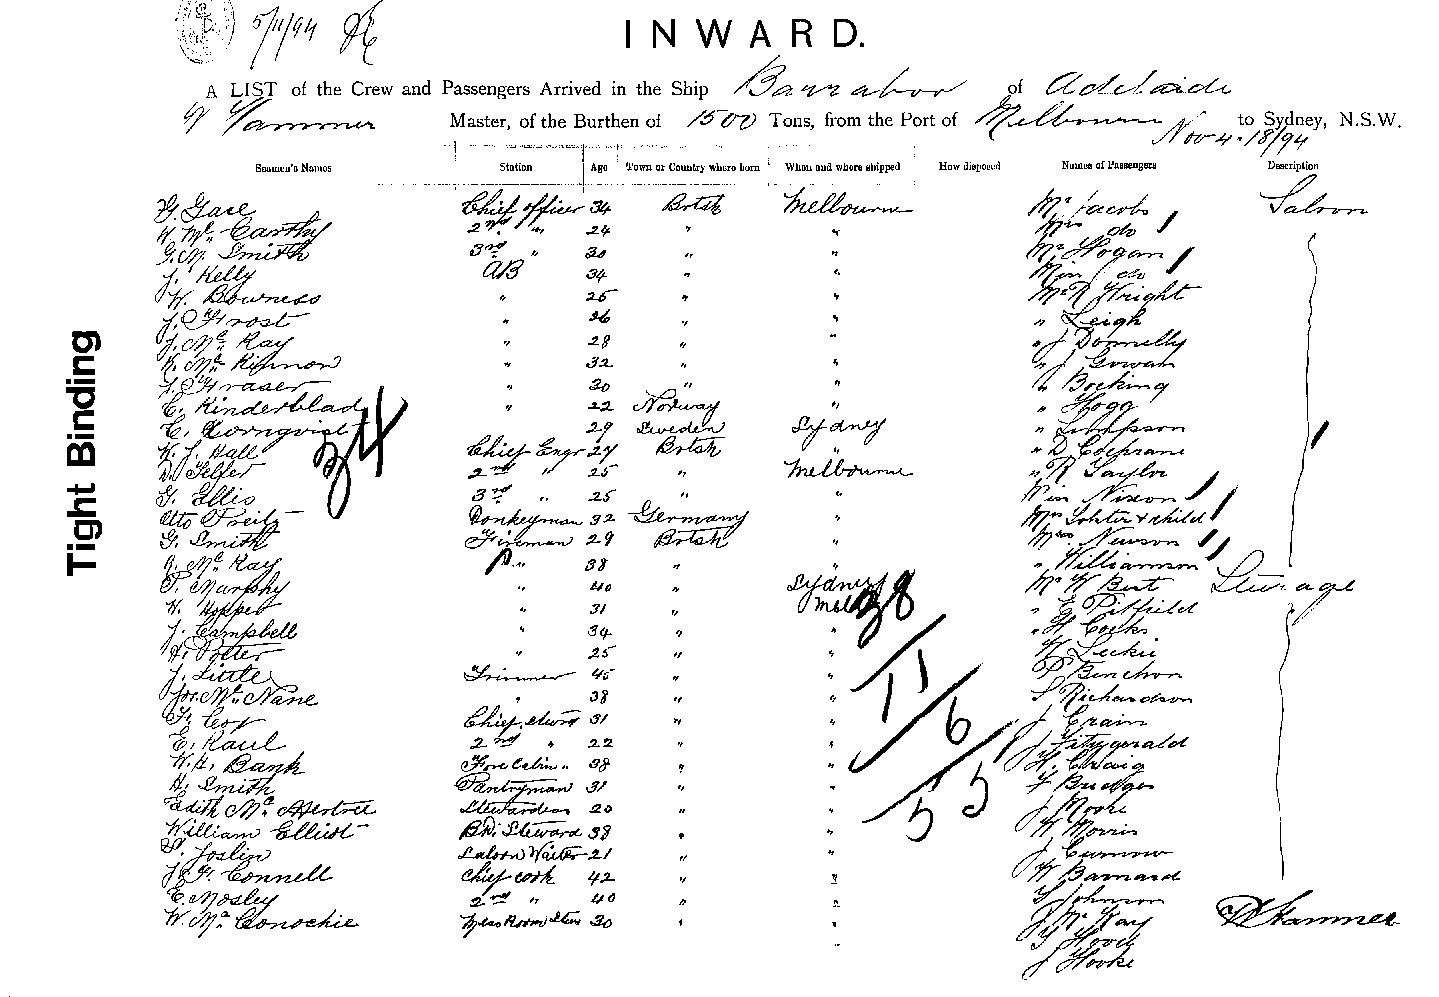 5/11/94
INWARD.
A LIST of the Crew and Passengers Arrived in the Ship Barrabool of Adelaide
Master, of the Burthen of 1500 Tons, from the Port of Melbourne to Sydney, N.S.W.
Nov 4-18/94
Seamen's Names Station Age Town or Country where born When and where shipped How disposed Names of Passengers Description
G. Gace Chief officer 34 Brtsh Melbourne Mr Jacobs Saloon
Mc Carthy 2nd " 24 " " Mrs do
G. M. Smith 3rd " 30 " " Mr Hogan
J. Kelly AB 34 " " Miss do
W. Bowness " 25 " " Mr R Wright
J. Frost " 26 " " " Leigh
J. Mc Kay " 28 " " " J Donnelly
K. Mc Kinnon " 32 " " " J Gowan
J. Fraser " 30 " " " Bocking
C. Kinderblad " 22 Norway " " Hogg
C. Zornqvist 29 Sweden Sydney " Simpson
34
W. J. Hall Chief Engr 27 Brtsh " " D. Cochrane
D. Telfer 2nd " 25 " Melbourne " R Taylor
G. Ellis 3rd " 25 " " Miss Nixon
Otto Freitz Donkeyman 32 Germany " Mrs & child
G. Smith Fireman 29 Brtsh " Mrs Newson
Mc Kay " 38 " " " Williamson
P. Murphy " 40 " Sydney Mr W Birt Steerage
W. Hopper " 31 " Mel " E Pitfield
38
J. Campbell " 34 " " " H Cocks
H. Potter " 25 " " W Leckie
J. Little Trimmer 45 " " P Benchon
11
Jos. Mc Nane " 38 " " S Richardson
F. Coy Chief Stwrd 31 " " J Crain
6
E. Raul 2nd " 22 " " J Fitzgerald
W. H. Bank Fore Cabin " 38 " " H. Craig
H. Smith Pantryman 31 " " F Bridges
55
Edith Stewardess 20 " " J Moore
William Elliot B.R. Steward 38 " " W Morris
S. Joslin Saloon Waiter 21 " " J Curnow
J. F. Connell Chief cook 42 " " W Barnard
E. Mosley 2nd " 40 " " S Johnson
W. Mc Conochie Mess Room Stew 30 " " J Mc Kay
" T Hood
J Hooke
Tight Binding